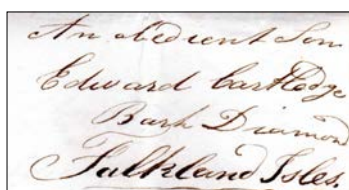 An obedient Son
Edward Cartledge
Bark Diamond
Falkland Isles.